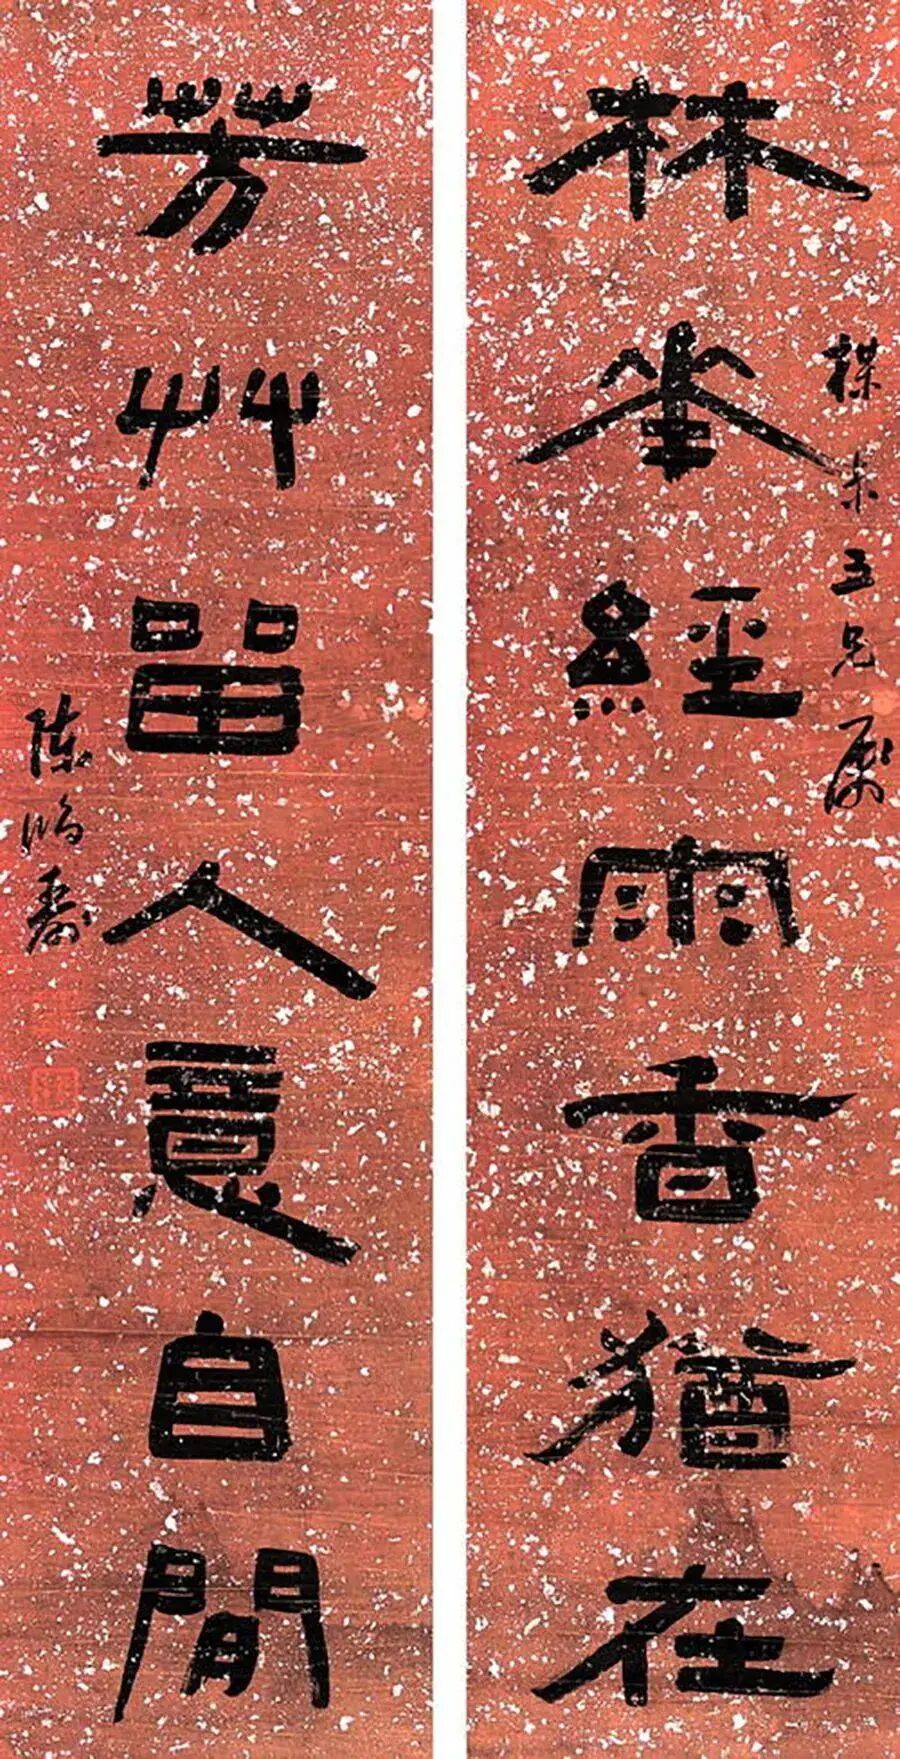 楳未五兄屬
林華經雨香猶在
芳艸留人意自閒
陳鴻壽